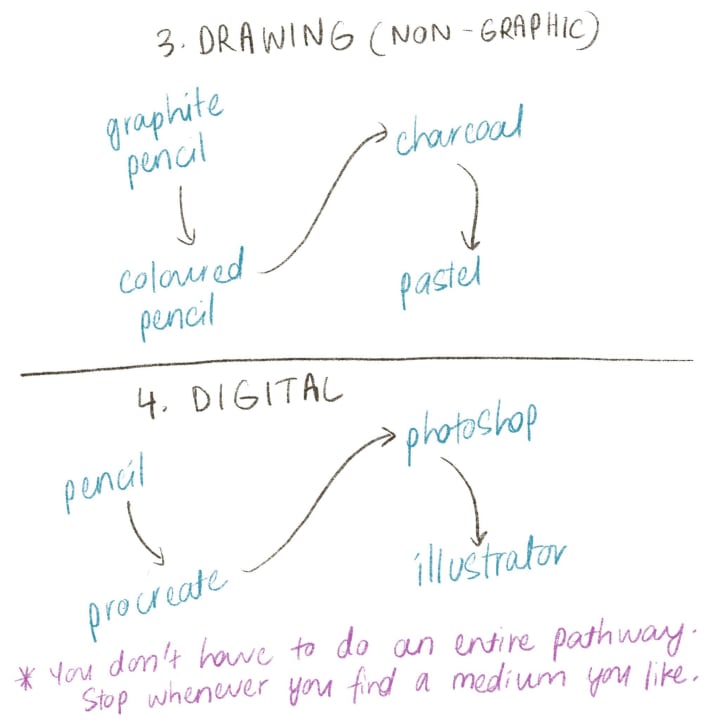 3. DRAWING (NON-GRAPHIC)
graphite
pencil
coloured
pencil
charcoal
pastel
4. DIGITAL
pencil
procreate
photoshop
illustrator
* You don't have to do an entire pathway.
Stop whenever you find a medium you like.